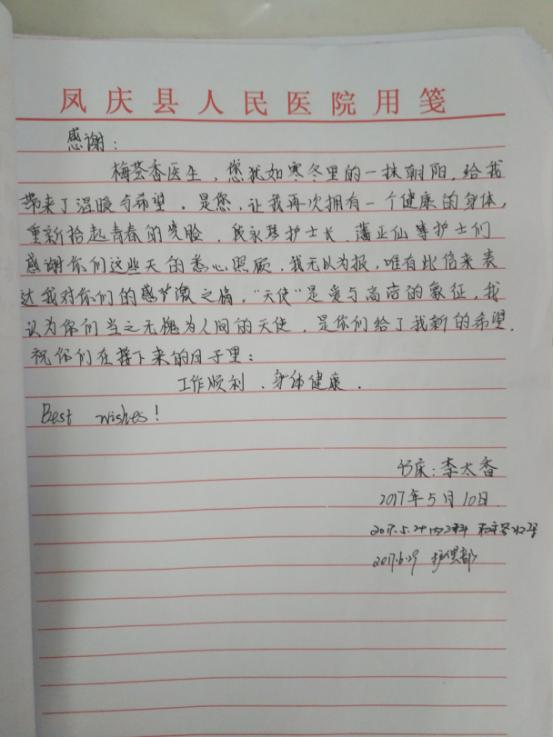 凤庆县人民医院用笺
感谢：
梅芸香医生，您犹如寒冬里的一抹朝阳，给我
带来了温暖与希望。是您，让我再次拥有一个健康的身体，
重新拾起青春的笑脸。我永琴护士长、潘亚仙等护士们
感谢你们这些天的悉心照顾，我无以为报，唯有此信来表
达我对你们的感激之情，“天使”是爱与高洁的象征，我
认为你们当之无愧为人间的天使，是你们给了我新的希望。
祝你们在接下来的日子里：
工作顺利、身体健康。
Best wishes！
床：李太香
2017年5月10日
2017.5.24
2017.6.29 护理部